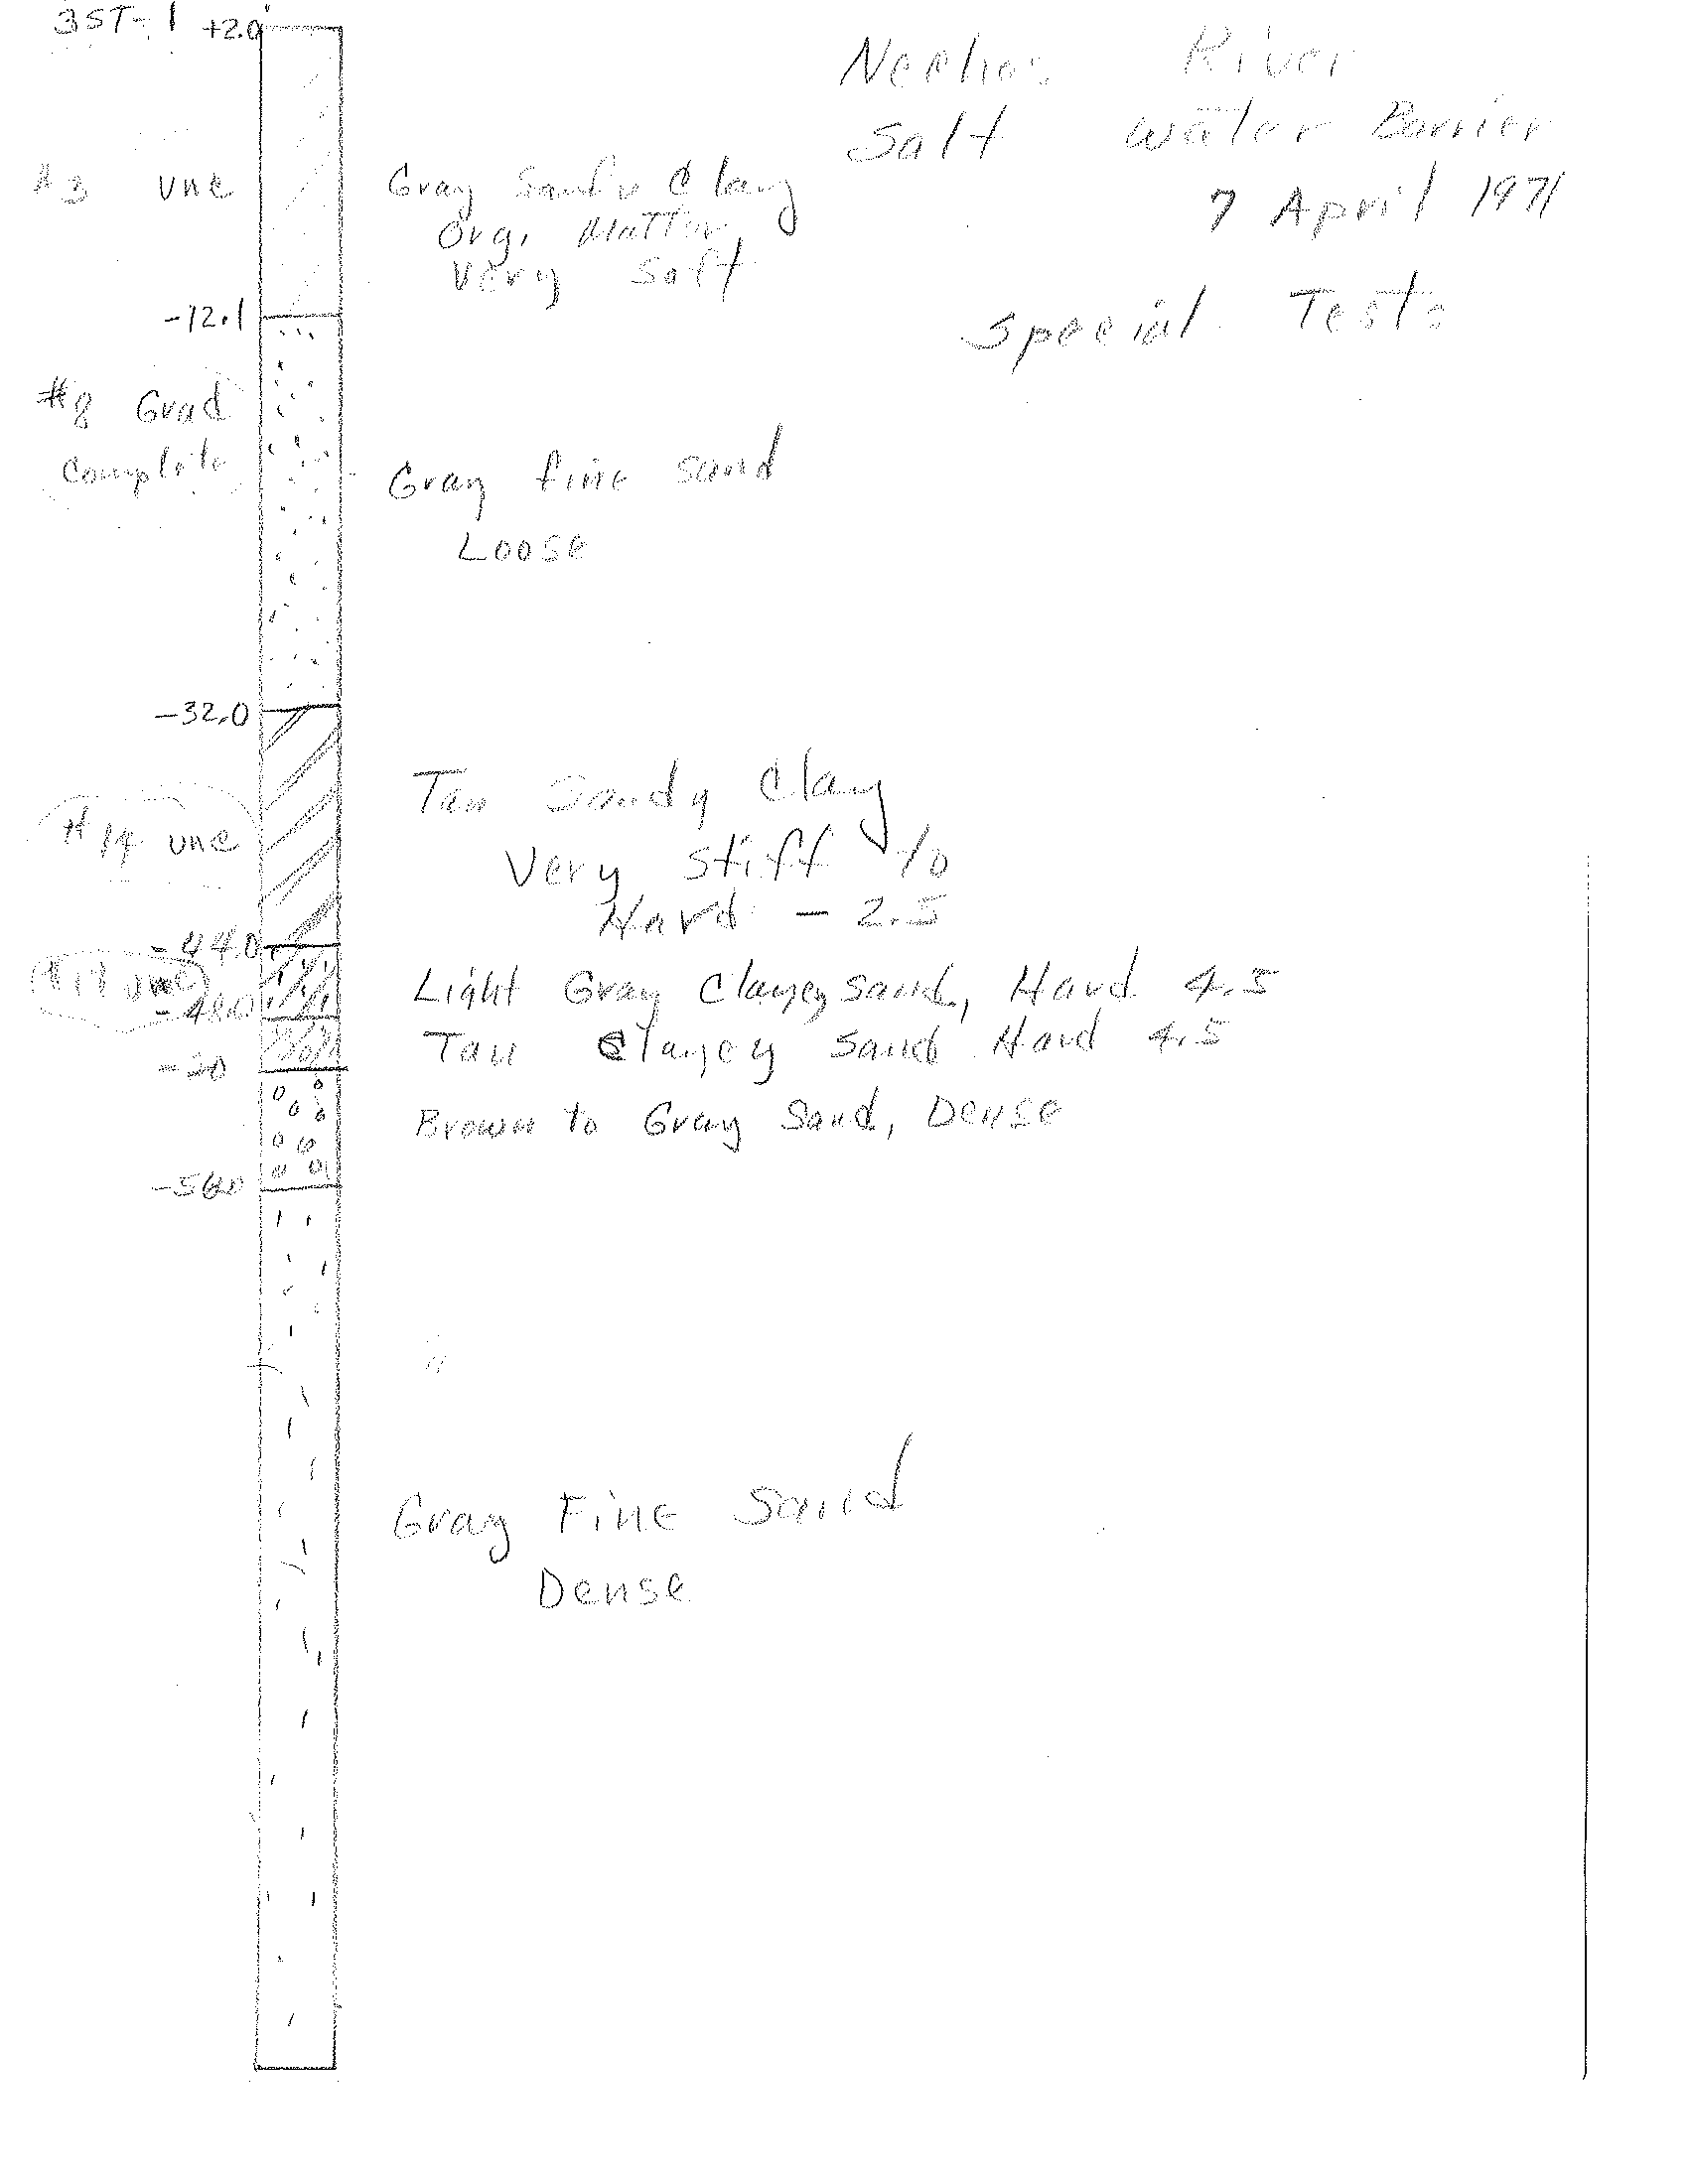 3ST-1 +2.0
Neches River
Salt Water Barrier
7 April 1971
Special Tests
#3 unc
Gray Sandy Clay
Org. Matter
Very Soft
-12.1
#8 Grad
Complete
Gray fine sand
Loose
-32.0
Tan Sandy Clay
#14 unc
Very Stiff to
Hard - 2.5
-44.0
unc
Light Gray Clayey sand, Hard 4.5
-48.0
Tan Clayey Sand Hard 4.5
Brown to Gray Sand, Dense
Gray Fine Sand
Dense